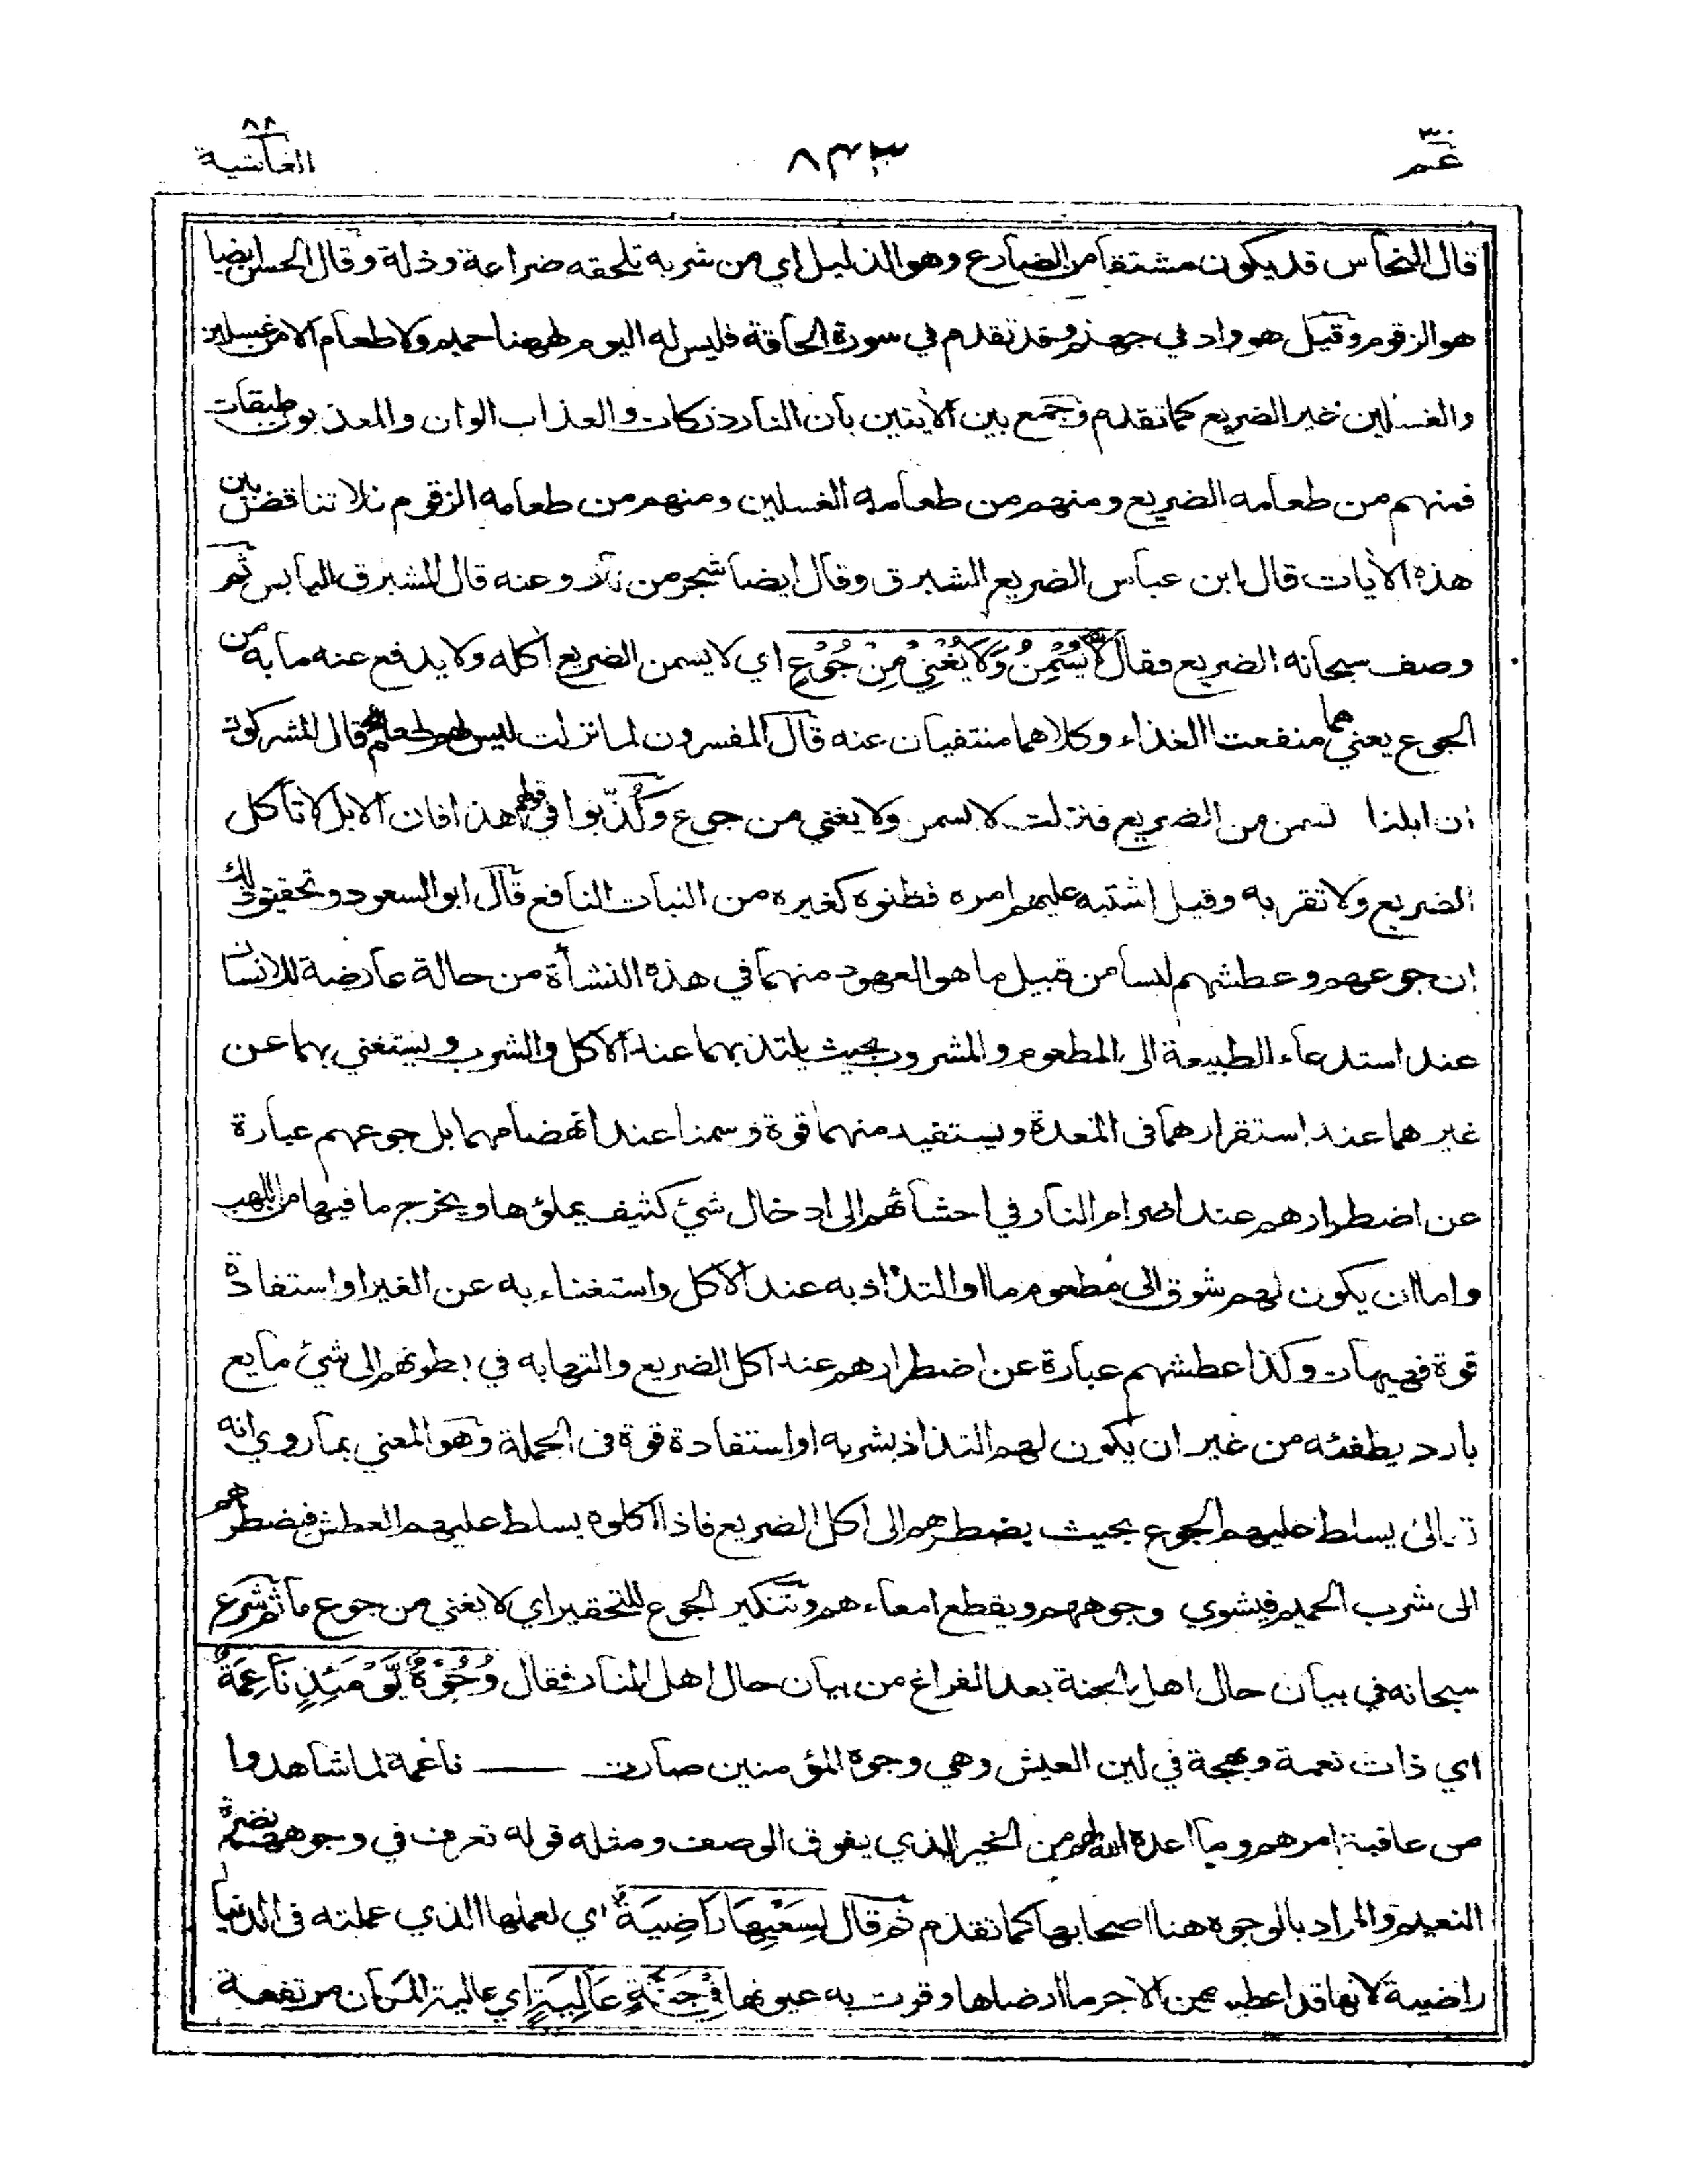 عم ٣٠
٨٤٣
الغاشية ٨٨
قال النحاس قد يكون مشتقا من الضارع وهو الذليل اي من شربه تلحقه ضراعة وذلة وقال الحسن ايضا
هو الزقوم وقيل هو واد في جهنم وقد تقدم في سورة الحاقة فليس له اليوم ههنا حميم ولا طعام الا من غسلين
والغسلين غير الضريع كما تقدم وجمع بين الأيتين بان النار دركات والعذاب الوان والمعذبون طبقات
فمنهم من طعامه الضريع ومنهم من طعامه الغسلين ومنهم من طعامه الزقوم فلا تناقض بين
هذه الأيات قال ابن عباس الضريع الشبرق وقال ايضا شجر من نار وعنه قال الشبرق اليابس ثم
وصف سبحانه الضريع فقال لَا يُسْمِنُ وَلَا يُغْنِيْ مِنْ جُوْعٍ اي لا يسمن الضريع أكله ولا يدفع عنه ما به من
الجوع يعني هما منفعتا الغذاء وكلاهما منتفيان عنه قال المفسرون لما نزلت ليس لهم طعام الخ قال المشركون
ان ابلنا تسمن من الضريع فنزلت لا يسمن ولا يغني من جوع وكُذّبوا في قولهم هذا فان الابل لا تأكل
الضريع ولا تقربه وقيل اشتبه عليهم امره فظنوه كغيره من النبات النافع قال ابو السعود وتحقيق ذلك
ان جوعهم وعطشهم ليسا من قبيل ما هو المعهود منهما في هذه النشأة من حالة عارضة للانسان
عند استدعاء الطبيعة الى المطعوم والمشروب بحيث يلتذ بهما عند الاكل والشرب ويستغني بهما عن
غيرهما عند استقرارهما فى المعدة ويستفيد منهما قوة وسمنا عند انهضامهما بل جوعهم عبارة
عن اضطرارهم عند اضرام النار في احشائهم الى ادخال شئ كثيف يملؤها ويخرج ما فيها من اللهب
واما ان يكون لهم شوق الى مطعوم ما او التذاذ به عند الاكل واستغناء به عن الغير او استفادة
قوة فهيهات وكذا عطشهم عبارة عن اضطرارهم عند اكل الضريع والتهابه في بطونهم الى شئ مايع
بارد يطفئه من غير ان يكون لهم التذاذ بشربه او استفادة قوة فى الجملة وهو المعني بما روي انه
تعالىٰ يسلط عليهم الجوع بحيث يضطرهم الى اكل الضريع فاذا اكلوه يسلط عليهم العطش فيضطرهم
الى شرب الحميم فيشوي وجوههم ويقطع امعاءهم وتنكير الجوع للتحقير اي لا يغني من جوع ما ثم شرع
سبحانه في بيان حال اهل الجنة بعد الفراغ من بيان حال اهل النار فقال وُجُوْهٌ يَّوْمَئِذٍ نَاعِمَةٌ
اي ذات نعمة وبهجة في لين العيش وهي وجوه المؤمنين صارت ناعمة لما شاهدوا
من عاقبة امرهم وما اعده الله لهم من الخير الذي يفوق الوصف ومثله قوله تعرف في وجوههم نضرة
النعيم والمراد بالوجوه هنا اصحابها كما تقدم ثم قال لِسَعْيِهَا رَاضِيَةٌ اي لعملها الذي عملته فى الدنيا
راضية لانها قد اعطيت من الاجر ما ارضاها وقرت به عيونها فِيْ جَنَّةٍ عَالِيَةٍ اي عالية المكان مرتفعة